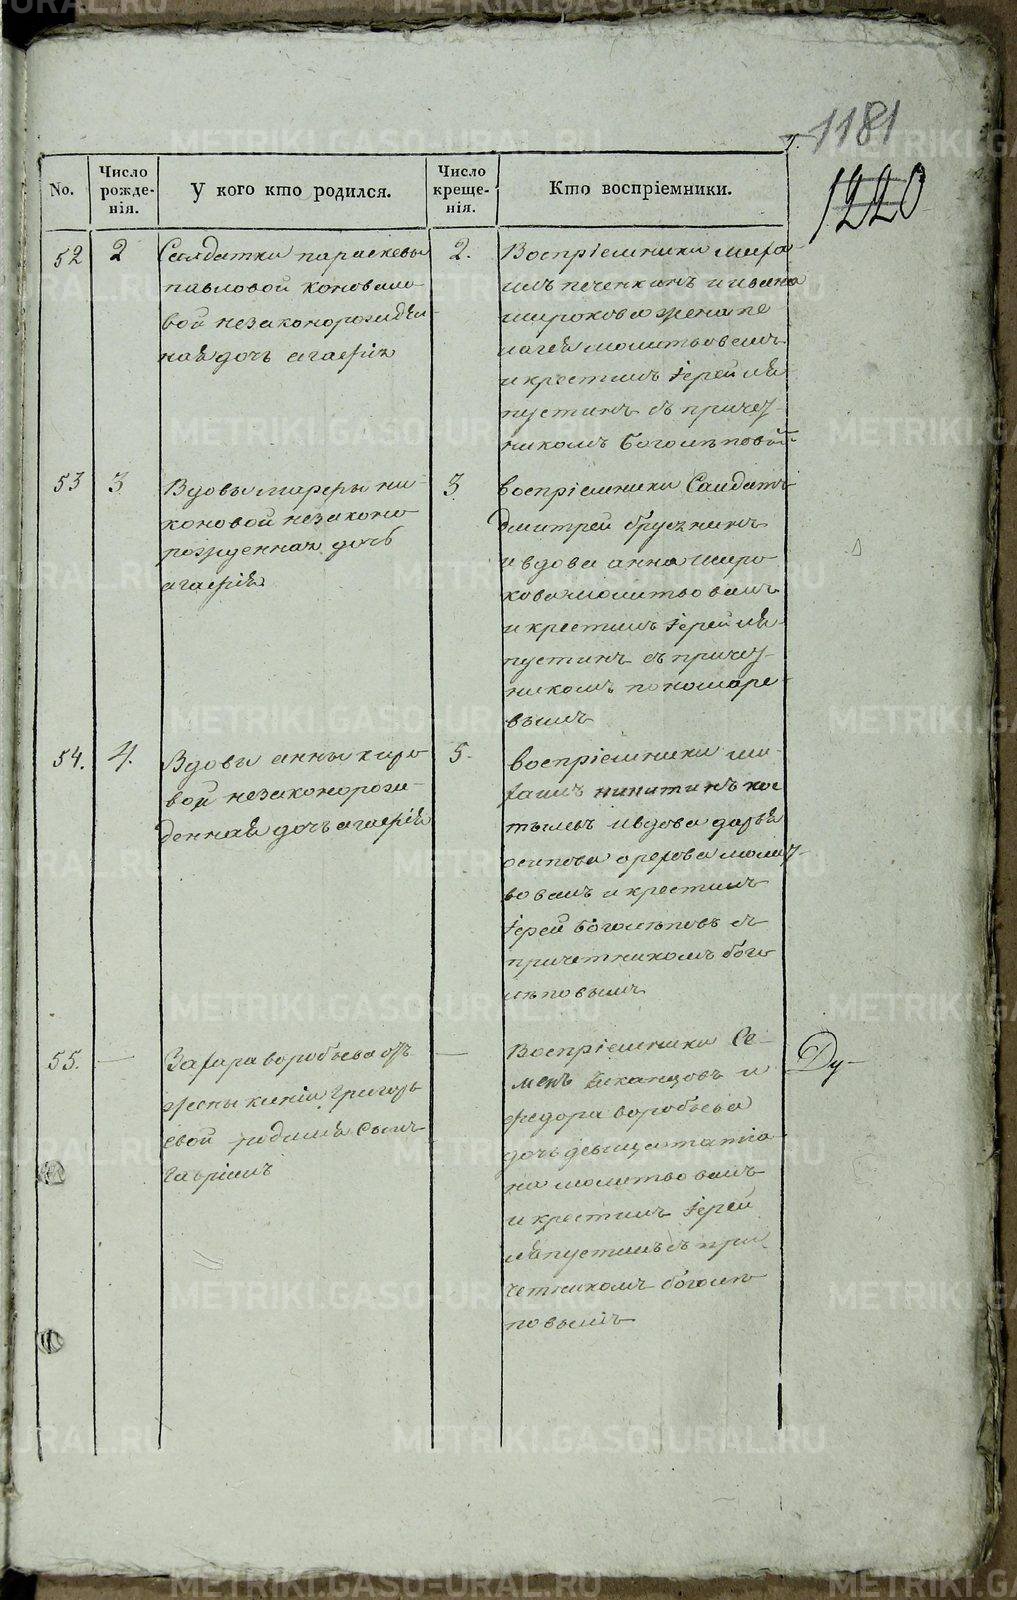 1181
1220
No.
Число рожденія.
У кого кто родился.
Число крещенія.
Кто воспріемники.
52 2 2.
Салдатки параскевы
павловой коновало
вой незаконорожден
ная дочь агафія
Воспріемники миха
илъ печенкинъ и ивана
широкова жена пе
лагея молитвовалъ
и крестилъ Іерей ля
пустинъ съ причет
никомъ Боголеповы
53 3 3
Вдовы марфы ни
коновой незаконо
рожденная дочь
агафія
воспріемники Салдатъ
дмитрей брусни
и вдова анна широ
кова молитвовалъ
и крестилъ Іерей ля
пустинъ съ причет
никомъ пономаре
вымъ
54. 4. 5.
Вдовы анны
вой незаконорож
денная дочь агафія
воспріемники ми
хаилъ никитинъ кос
тылевъ и вдова дарья
осипова орехова молит
вовалъ и крестилъ
Іерей боголеповъ съ
причетникомъ бого
леповымъ
55. — —
Захара воробьева отъ
жены ксеніи григорь
евой родился сынъ
гавріилъ
Воспріемники Се
менъ и
федора воробьева
дочь девица татіа
на молитвовалъ
и крестилъ Іерей
ляпустинъ съ при
четникомъ боголе
повымъ
Ду
METRIKI.GASO-URAL.RU